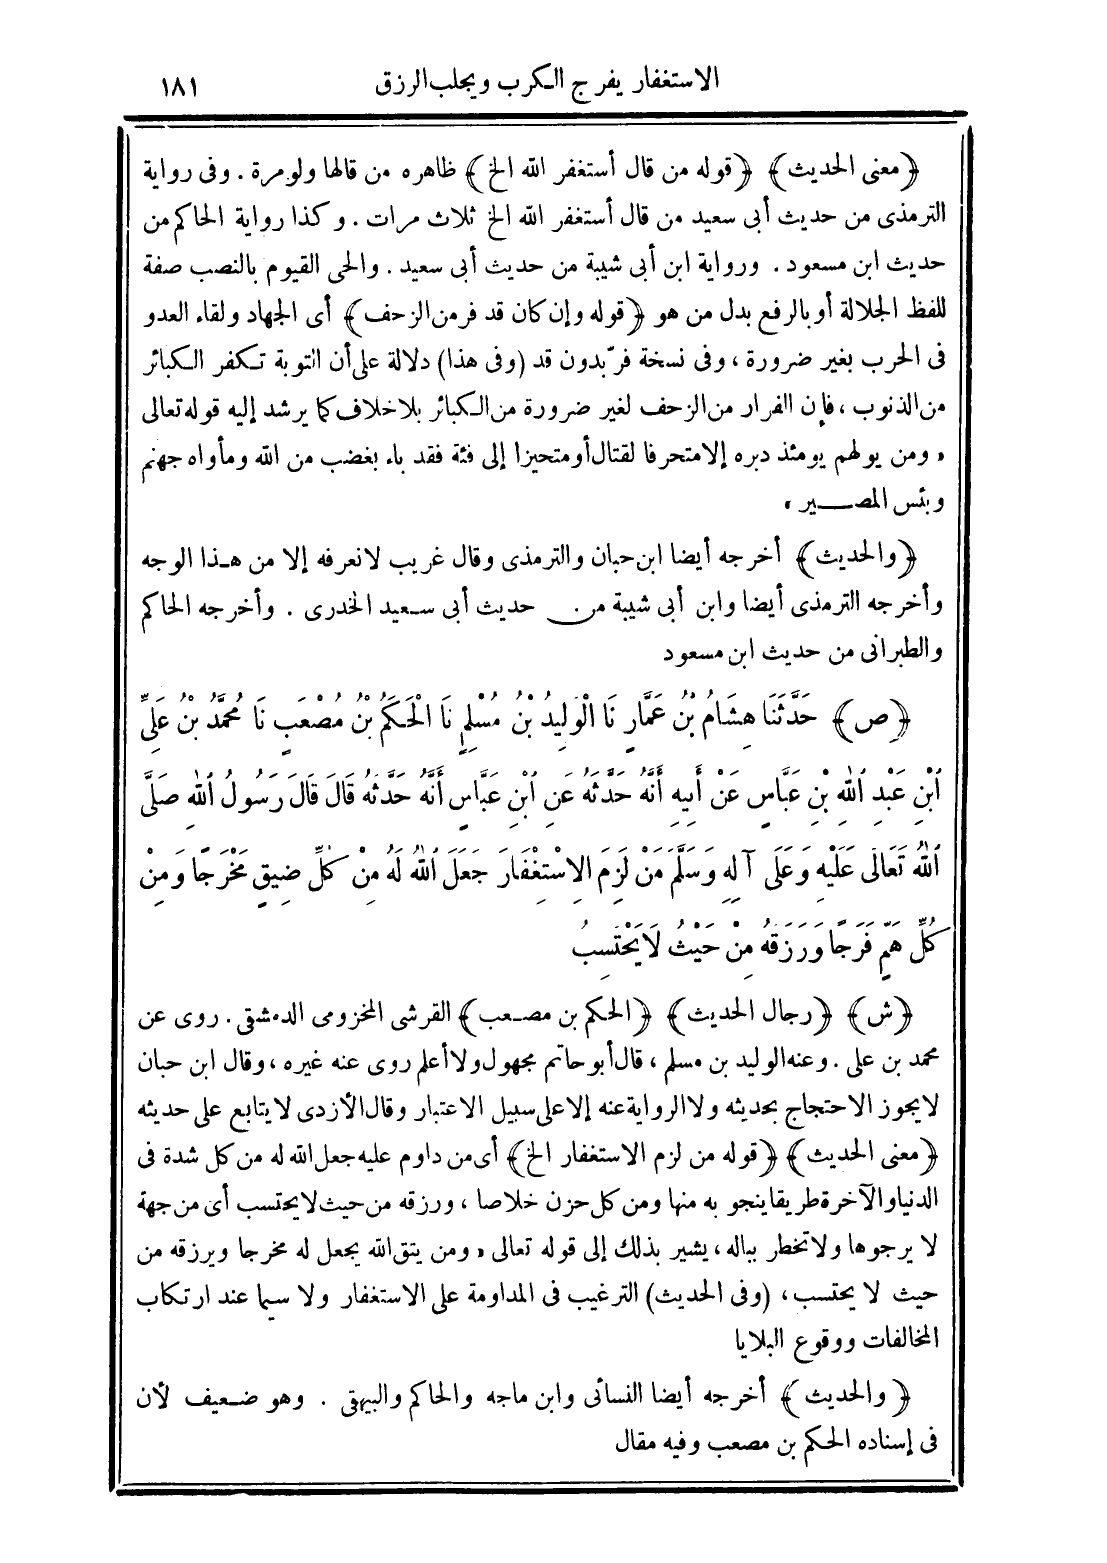 الاستغفار يفرج الكرب ويجلب الرزق ١٨١
﴿معنى الحديث﴾ ﴿قوله من قال أستغفر الله الخ﴾ ظاهره من قالها ولو مرة . وفى رواية
الترمذى من حديث أبى سعيد من قال أستغفر الله الخ ثلاث مرات . وكذا رواية الحاكم من
حديث ابن مسعود . ورواية ابن أبى شيبة من حديث أبى سعيد . والحى القيوم بالنصب صفة
للفظ الجلالة أو بالرفع بدل من هو ﴿قوله وإن كان قد فر من الزحف﴾ أى الجهاد ولقاء العدو
فى الحرب بغير ضرورة ، وفى نسخة فرّ بدون قد (وفى هذا) دلالة على أن التوبة تكفر الكبائر
من الذنوب ، فإن الفرار من الزحف لغير ضرورة من الكبائر بلا خلاف كما يرشد إليه قوله تعالى
« ومن يولهم يومئذ دبره إلا متحرفا لقتال أو متحيزا إلى فئة فقد باء بغضب من الله ومأواه جهنم
وبئس المصير »
﴿والحديث﴾ أخرجه أيضا ابن حبان والترمذى وقال غريب لا نعرفه إلا من هذا الوجه
وأخرجه الترمذى أيضا وابن أبى شيبة من حديث أبى سعيد الخدرى . وأخرجه الحاكم
والطبرانى من حديث ابن مسعود
﴿ص﴾ حَدَّثَنَا هِشَامُ بْنُ عَمَّارٍ نَا الْوَلِيدُ بْنُ مُسْلِمٍ نَا الْحَكَمُ بْنُ مُصْعَبٍ نَا مُحَمَّدُ بْنُ عَلِيِّ
ٱبْنِ عَبْدِ ٱللهِ بْنِ عَبَّاسٍ عَنْ أَبِيهِ أَنَّهُ حَدَّثَهُ عَنِ ٱبْنِ عَبَّاسٍ أَنَّهُ حَدَّثَهُ قَالَ قَالَ رَسُولُ ٱللهِ صَلَّى
ٱللهُ تَعَالَى عَلَيْهِ وَعَلَى آلِهِ وَسَلَّمَ مَنْ لَزِمَ الِاسْتِغْفَارَ جَعَلَ ٱللهُ لَهُ مِنْ كُلِّ ضِيقٍ مَخْرَجًا وَمِنْ
كُلِّ هَمٍّ فَرَجًا وَرَزَقَهُ مِنْ حَيْثُ لَا يَحْتَسِبُ
﴿ش﴾ ﴿رجال الحديث﴾ ﴿الحكم بن مصعب﴾ القرشى المخزومى الدمشقى . روى عن
محمد بن على . وعنه الوليد بن مسلم ، قال أبو حاتم مجهول ولا أعلم روى عنه غيره ، وقال ابن حبان
لا يجوز الاحتجاج بحديثه ولا الرواية عنه إلا على سبيل الاعتبار وقال الأزدى لا يتابع على حديثه
﴿معنى الحديث﴾ ﴿قوله من لزم الاستغفار الخ﴾ أى من داوم عليه جعل الله له من كل شدة فى
الدنيا والآخرة طريقا ينجو به منها ومن كل حزن خلاصا ، ورزقه من حيث لا يحتسب أى من جهة
لا يرجوها ولا تخطر بباله ، يشير بذلك إلى قوله تعالى « ومن يتق الله يجعل له مخرجا ويرزقه من
حيث لا يحتسب » (وفى الحديث) الترغيب فى المداومة على الاستغفار ولا سيما عند ارتكاب
المخالفات ووقوع البلايا
﴿والحديث﴾ أخرجه أيضا النسائى وابن ماجه والحاكم والبيهقى . وهو ضعيف لأن
فى إسناده الحكم بن مصعب وفيه مقال